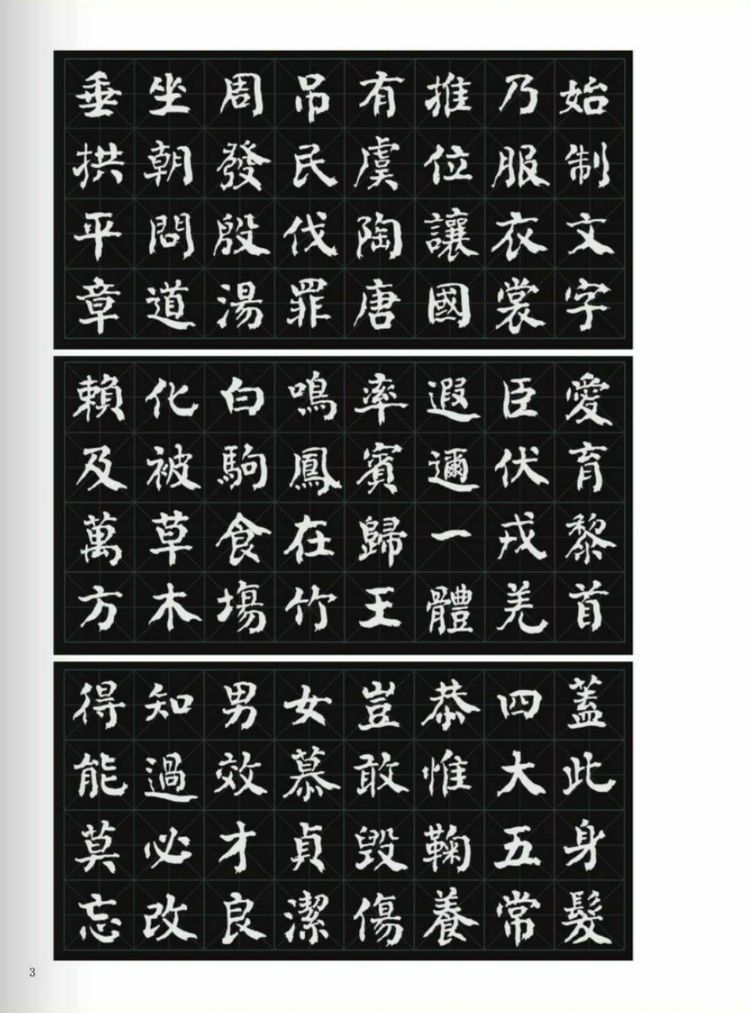 始制文字
乃服衣裳
推位讓國
有虞陶唐
吊民伐罪
周發殷湯
坐朝問道
垂拱平章
愛育黎首
臣伏戎羌
遐邇一體
率賓歸王
鳴鳳在竹
白駒食場
化被草木
賴及萬方
蓋此身髮
四大五常
恭惟鞠養
豈敢毀傷
女慕貞潔
男效才良
知過必改
得能莫忘
3